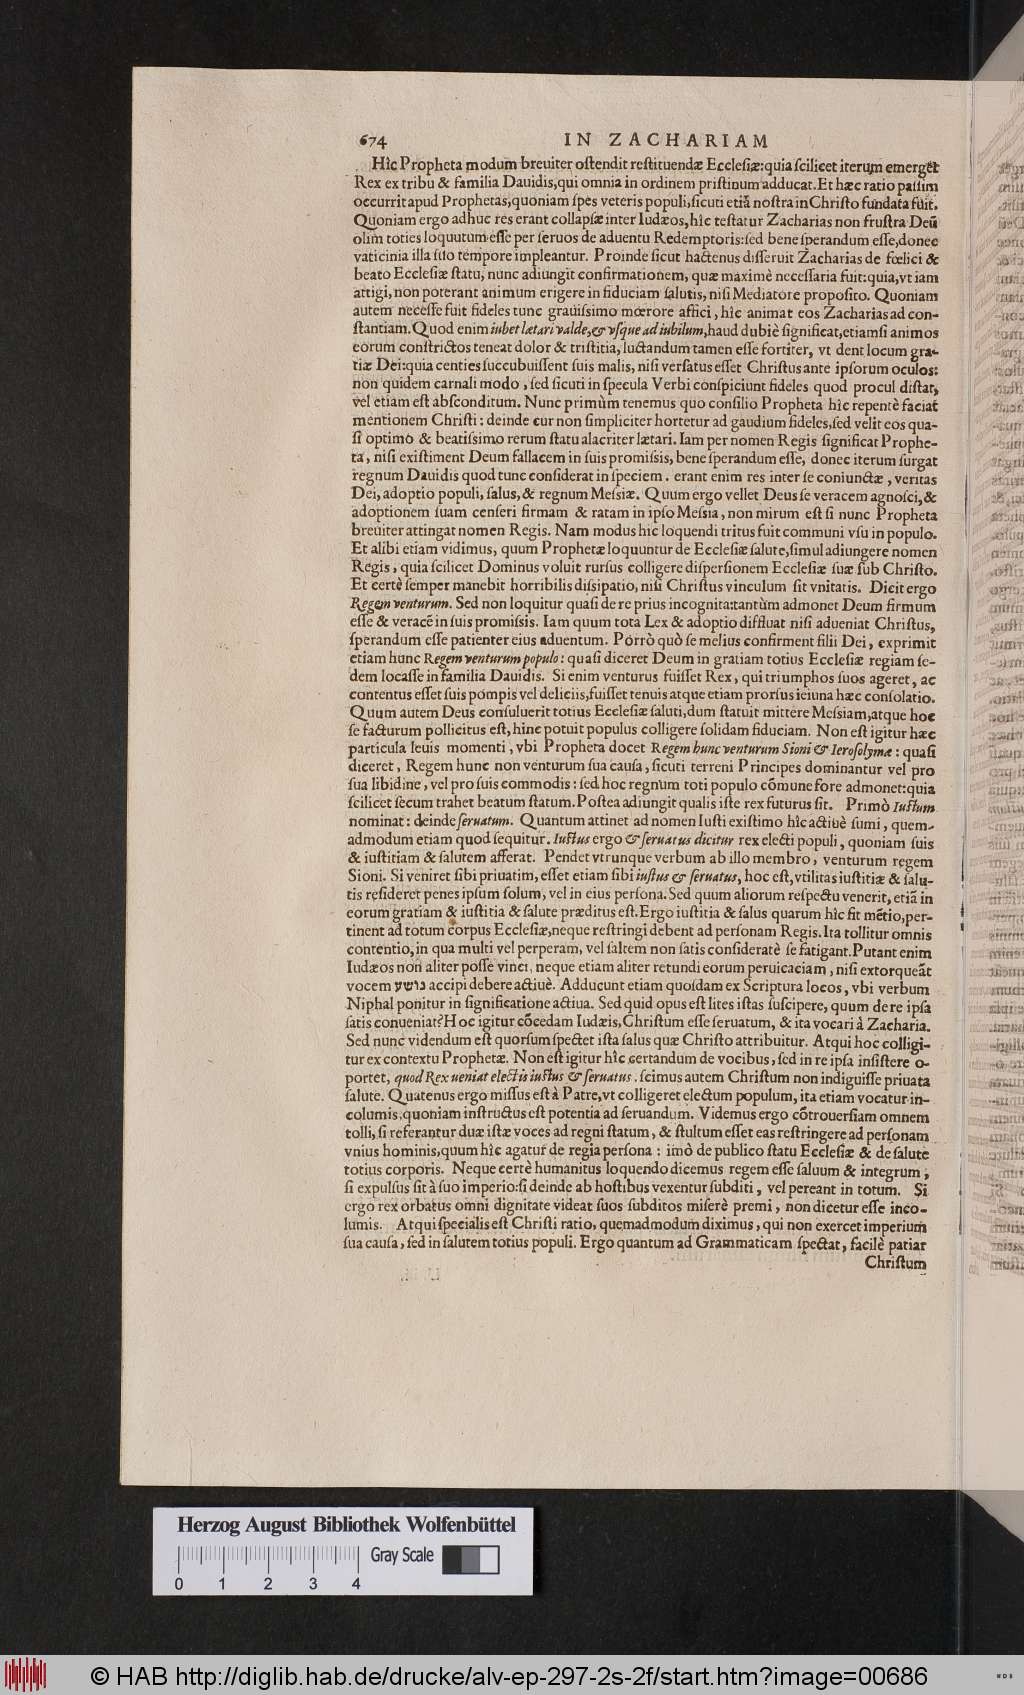 674 IN ZACHARIAM
Hîc Propheta modum breuiter oſtendit reſtituendæ Eccleſiæ: quia ſcilicet iterum emerget
Rex ex tribu & familia Dauidis, qui omnia in ordinem priſtinum adducat. Et hæc ratio paſſim
occurrit apud Prophetas, quoniam ſpes veteris populi, ſicuti etiã noſtra in Chriſto fundata fuit.
Quoniam ergo adhuc res erant collapſæ inter Iudæos, hîc teſtatur Zacharias non fruſtra Deũ
olim toties loquutum eſſe per ſeruos de aduentu Redemptoris: ſed bene ſperandum eſſe, donec
vaticinia illa ſuo tempore impleantur. Proinde ſicut hactenus diſſeruit Zacharias de fœlici &
beato Eccleſiæ ſtatu, nunc adiungit confirmationem, quæ maximè neceſſaria fuit: quia, vt iam
attigi, non poterant animum erigere in fiduciam ſalutis, niſi Mediatore propoſito. Quoniam
autem neceſſe fuit fideles tunc grauiſsimo mœrore affici, hîc animat eos Zacharias ad con-
ſtantiam. Quod enim iubet lætari valde, & vſque ad iubilum, haud dubiè ſignificat, etiamſi animos
eorum conſtrictos teneat dolor & triſtitia, luctandum tamen eſſe fortiter, vt dent locum gra-
tiæ Dei: quia centies ſuccubuiſſent ſuis malis, niſi verſatus eſſet Chriſtus ante ipſorum oculos:
non quidem carnali modo, ſed ſicuti in ſpecula Verbi conſpiciunt fideles quod procul diſtat,
vel etiam eſt abſconditum. Nunc primùm tenemus quo conſilio Propheta hîc repentè faciat
mentionem Chriſti: deinde cur non ſimpliciter hortetur ad gaudium fideles, ſed velit eos qua-
ſi optimo & beatiſsimo rerum ſtatu alacriter lætari. Iam per nomen Regis ſignificat Prophe-
ta, niſi exiſtiment Deum fallacem in ſuis promiſsis, bene ſperandum eſſe, donec iterum ſurgat
regnum Dauidis quod tunc conſiderat in ſpeciem. erant enim res inter ſe coniunctæ, veritas
Dei, adoptio populi, ſalus, & regnum Meſsiæ. Quum ergo vellet Deus ſe veracem agnoſci, &
adoptionem ſuam cenſeri firmam & ratam in ipſo Meſsia, non mirum eſt ſi nunc Propheta
breuiter attingat nomen Regis. Nam modus hic loquendi tritus fuit communi vſu in populo.
Et alibi etiam vidimus, quum Prophetæ loquuntur de Eccleſiæ ſalute, ſimul adiungere nomen
Regis, quia ſcilicet Dominus voluit rurſus colligere diſperſionem Eccleſiæ ſuæ ſub Chriſto.
Et certè ſemper manebit horribilis diſsipatio, niſi Chriſtus vinculum ſit vnitatis. Dicit ergo
Regem venturum. Sed non loquitur quaſi de re prius incognita: tantùm admonet Deum firmum
eſſe & veracẽ in ſuis promiſsis. Iam quum tota Lex & adoptio diffluat niſi adueniat Chriſtus,
ſperandum eſſe patienter eius aduentum. Porrò quò ſe melius confirment filii Dei, exprimit
etiam hunc Regem venturum populo: quaſi diceret Deum in gratiam totius Eccleſiæ regiam ſe-
dem locaſſe in familia Dauidis. Si enim venturus fuiſſet Rex, qui triumphos ſuos ageret, ac
contentus eſſet ſuis pompis vel deliciis, fuiſſet tenuis atque etiam prorſus ieiuna hæc conſolatio.
Quum autem Deus conſuluerit totius Eccleſiæ ſaluti, dum ſtatuit mittere Meſsiam, atque hoc
ſe facturum pollicitus eſt, hinc potuit populus colligere ſolidam fiduciam. Non eſt igitur hæc
particula leuis momenti, vbi Propheta docet Regem hunc venturum Sioni & Ieroſolymæ: quaſi
diceret, Regem hunc non venturum ſua cauſa, ſicuti terreni Principes dominantur vel pro
ſua libidine, vel pro ſuis commodis: ſed hoc regnum toti populo cõmune fore admonet: quia
ſcilicet ſecum trahet beatum ſtatum. Poſtea adiungit qualis iſte rex futurus ſit. Primò Iuſtum
nominat: deinde ſeruatum. Quantum attinet ad nomen Iuſti exiſtimo hîc actiuè ſumi, quem-
admodum etiam quod ſequitur. Iuſtus ergo & ſeruatus dicitur rex electi populi, quoniam ſuis
& iuſtitiam & ſalutem afferat. Pendet vtrunque verbum ab illo membro, venturum regem
Sioni. Si veniret ſibi priuatim, eſſet etiam ſibi iuſtus & ſeruatus, hoc eſt, vtilitas iuſtitiæ & ſalu-
tis reſideret penes ipſum ſolum, vel in eius perſona. Sed quum aliorum reſpectu venerit, etiã in
eorum gratiam & iuſtitia & ſalute præditus eſt. Ergo iuſtitia & ſalus quarum hîc fit mẽtio, per-
tinent ad totum corpus Eccleſiæ, neque reſtringi debent ad perſonam Regis. Ita tollitur omnis
contentio, in qua multi vel perperam, vel ſaltem non ſatis conſideratè ſe fatigant. Putant enim
Iudæos non aliter poſſe vinci, neque etiam aliter retundi eorum peruicaciam, niſi extorqueãt
vocem נושע accipi debere actiuè. Adducunt etiam quoſdam ex Scriptura locos, vbi verbum
Niphal ponitur in ſignificatione actiua. Sed quid opus eſt lites iſtas ſuſcipere, quum de re ipſa
ſatis conueniat? Hoc igitur cõcedam Iudæis, Chriſtum eſſe ſeruatum, & ita vocari à Zacharia.
Sed nunc videndum eſt quorſum ſpectet iſta ſalus quæ Chriſto attribuitur. Atqui hoc colligi-
tur ex contextu Prophetæ. Non eſt igitur hîc certandum de vocibus, ſed in re ipſa inſiſtere o-
portet, quod Rex ueniat electis iuſtus & ſeruatus. ſcimus autem Chriſtum non indiguiſſe priuata
ſalute. Quatenus ergo miſſus eſt à Patre, vt colligeret electum populum, ita etiam vocatur in-
columis, quoniam inſtructus eſt potentia ad ſeruandum. Videmus ergo cõtrouerſiam omnem
tolli, ſi referantur duæ iſtæ voces ad regni ſtatum, & ſtultum eſſet eas reſtringere ad perſonam
vnius hominis, quum hîc agatur de regia perſona: imò de publico ſtatu Eccleſiæ & de ſalute
totius corporis. Neque certè humanitus loquendo dicemus regem eſſe ſaluum & integrum,
ſi expulſus ſit à ſuo imperio: ſi deinde ab hoſtibus vexentur ſubditi, vel pereant in totum. Si
ergo rex orbatus omni dignitate videat ſuos ſubditos miſerè premi, non dicetur eſſe inco-
lumis. Atqui ſpecialis eſt Chriſti ratio, quemadmodum diximus, qui non exercet imperium
ſua cauſa, ſed in ſalutem totius populi. Ergo quantum ad Grammaticam ſpectat, facilè patiar
Chriſtum
Herzog August Bibliothek Wolfenbüttel
Gray Scale
0 1 2 3 4
© HAB http://diglib.hab.de/drucke/alv-ep-297-2s-2f/start.htm?image=00686